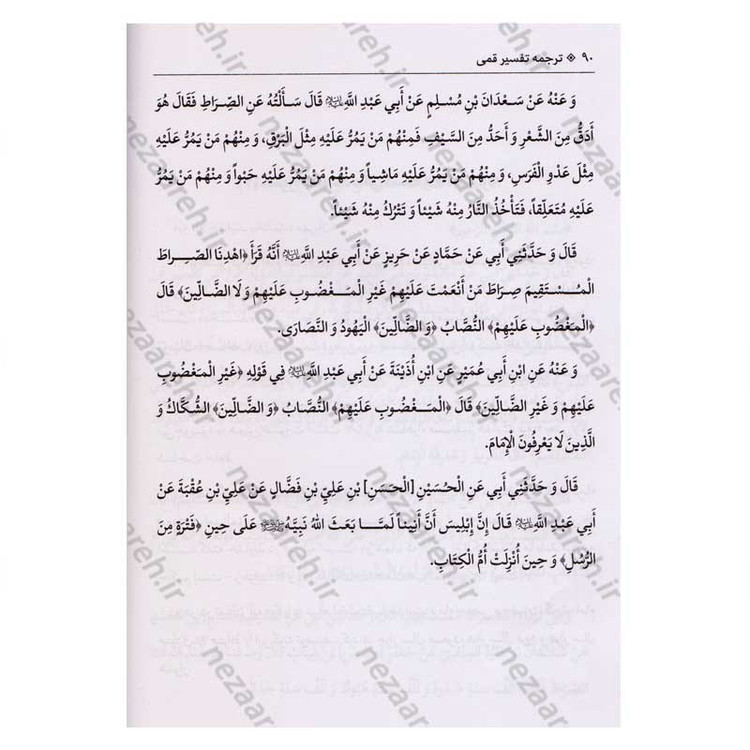 ۹۰ ※ ترجمه تفسیر قمی
وَ عَنْهُ عَنْ سَعْدَانَ بْنِ مُسْلِمٍ عَنْ أَبِي عَبْدِ اللَّهِ عَلَيْهِ السَّلَام قَالَ سَأَلْتُهُ عَنِ الصِّرَاطِ فَقَالَ هُوَ
أَدَقُّ مِنَ الشَّعْرِ وَ أَحَدُّ مِنَ السَّيْفِ فَمِنْهُمْ مَنْ يَمُرُّ عَلَيْهِ مِثْلَ الْبَرْقِ، وَ مِنْهُمْ مَنْ يَمُرُّ عَلَيْهِ
مِثْلَ عَدْوِ الْفَرَسِ، وَ مِنْهُمْ مَنْ يَمُرُّ عَلَيْهِ مَاشِياً وَ مِنْهُمْ مَنْ يَمُرُّ عَلَيْهِ حَبْواً وَ مِنْهُمْ مَنْ يَمُرُّ
عَلَيْهِ مُتَعَلِّقاً، فَتَأْخُذُ النَّارُ مِنْهُ شَيْئاً وَ تَتْرُكُ مِنْهُ شَيْئاً.
قَالَ وَ حَدَّثَنِي أَبِي عَنْ حَمَّادٍ عَنْ حَرِيزٍ عَنْ أَبِي عَبْدِ اللَّهِ عَلَيْهِ السَّلَام أَنَّهُ قَرَأَ ﴿اهْدِنَا الصِّرَاطَ
الْمُسْتَقِيمَ صِرَاطَ مَنْ أَنْعَمْتَ عَلَيْهِمْ غَيْرِ الْمَغْضُوبِ عَلَيْهِمْ وَ لَا الضَّالِّينَ﴾ قَالَ
﴿الْمَغْضُوبِ عَلَيْهِمْ﴾ النُّصَّابُ ﴿وَ الضَّالِّينَ﴾ الْيَهُودُ وَ النَّصَارَى.
وَ عَنْهُ عَنِ ابْنِ أَبِي عُمَيْرٍ عَنِ ابْنِ أُذَيْنَةَ عَنْ أَبِي عَبْدِ اللَّهِ عَلَيْهِ السَّلَام فِي قَوْلِهِ ﴿غَيْرِ الْمَغْضُوبِ
عَلَيْهِمْ وَ غَيْرِ الضَّالِّينَ﴾ قَالَ ﴿الْمَغْضُوبِ عَلَيْهِمْ﴾ النُّصَّابُ ﴿وَ الضَّالِّينَ﴾ الشُّكَّاكُ وَ
الَّذِينَ لَا يَعْرِفُونَ الْإِمَامَ.
قَالَ وَ حَدَّثَنِي أَبِي عَنِ الْحُسَيْنِ [الْحَسَنِ] بْنِ عَلِيِّ بْنِ فَضَّالٍ عَنْ عَلِيِّ بْنِ عُقْبَةَ عَنْ
أَبِي عَبْدِ اللَّهِ عَلَيْهِ السَّلَام قَالَ إِنَّ إِبْلِيسَ أَنَّ أَنِيناً لَمَّا بَعَثَ اللَّهُ نَبِيَّهُ ﷺ عَلَى حِينِ ﴿فَتْرَةٍ مِنَ
الرُّسُلِ﴾ وَ حِينَ أُنْزِلَتْ أُمُّ الْكِتَابِ.
nezaareh.ir